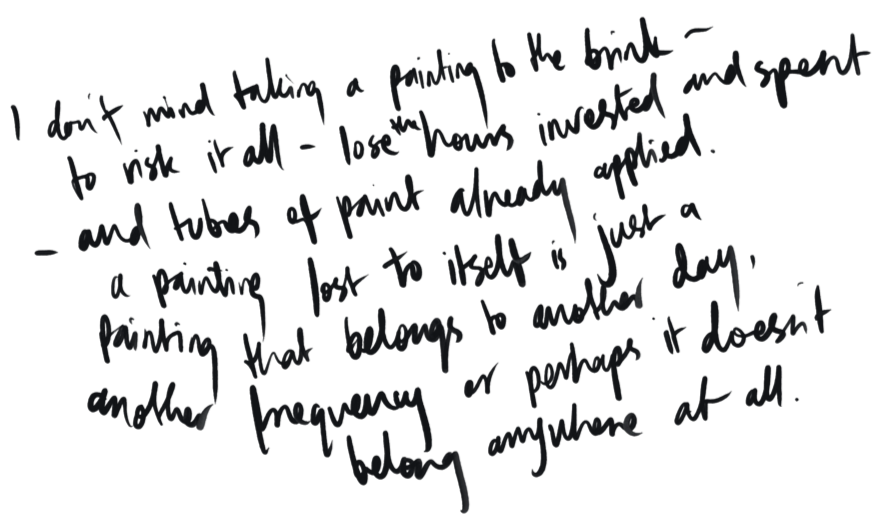 I don't mind taking a painting to the brink –
to risk it all – lose the hours invested and spent
– and tubes of paint already applied.
a painting lost to itself is just a
painting that belongs to another day,
another frequency or perhaps it doesn't
belong anywhere at all.